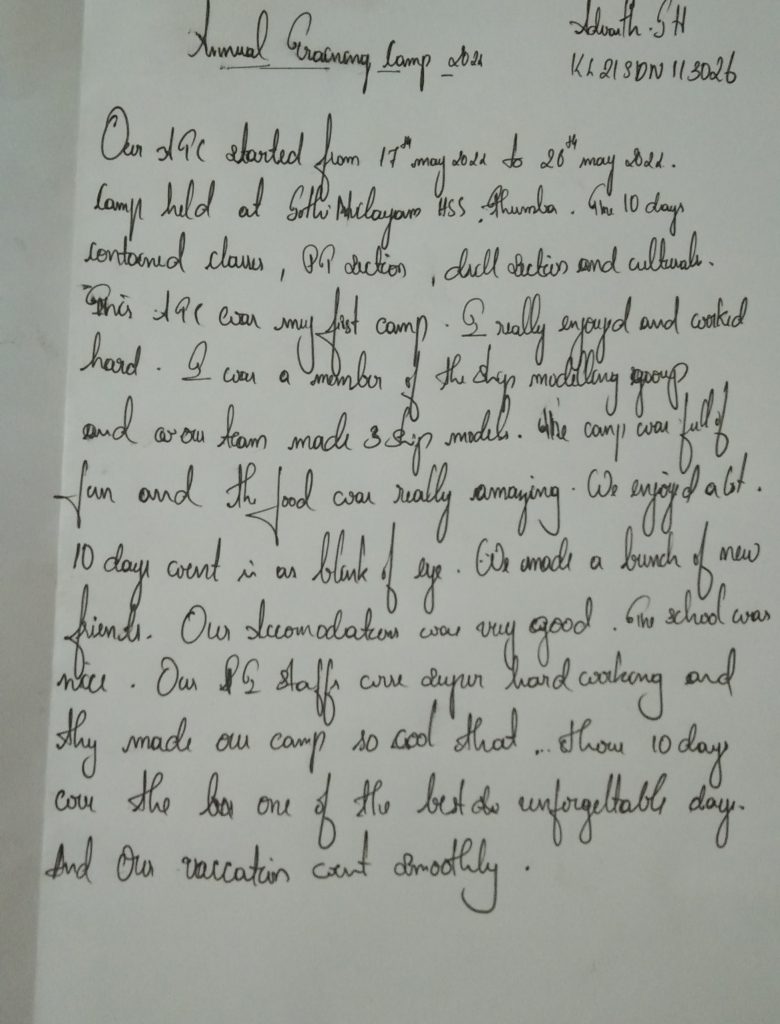 Annual Training Camp 2022
Advaith. S H
KL21SDN113026
Our ATC started from 17th may 2022 to 26th may 2022.
Camp held at Jyothi Nilayam HSS, Thumba. The 10 days
contained classes, PT section, drill section and culturals.
This ATC was my first camp. I really enjoyed and worked
hard. I was a member of the ship modelling group
and our team made 3 ship models. The camp was full of
fun and the food was really amazing. We enjoyed a lot.
10 days went in an blink of eye. We made a bunch of new
friends. Our Accomodation was very good. The school was
nice. Our staffs were super hard working and
they made our camp so cool that ... those 10 days
were the one of the best unforgettable days.
And Our vaccation went smoothly.